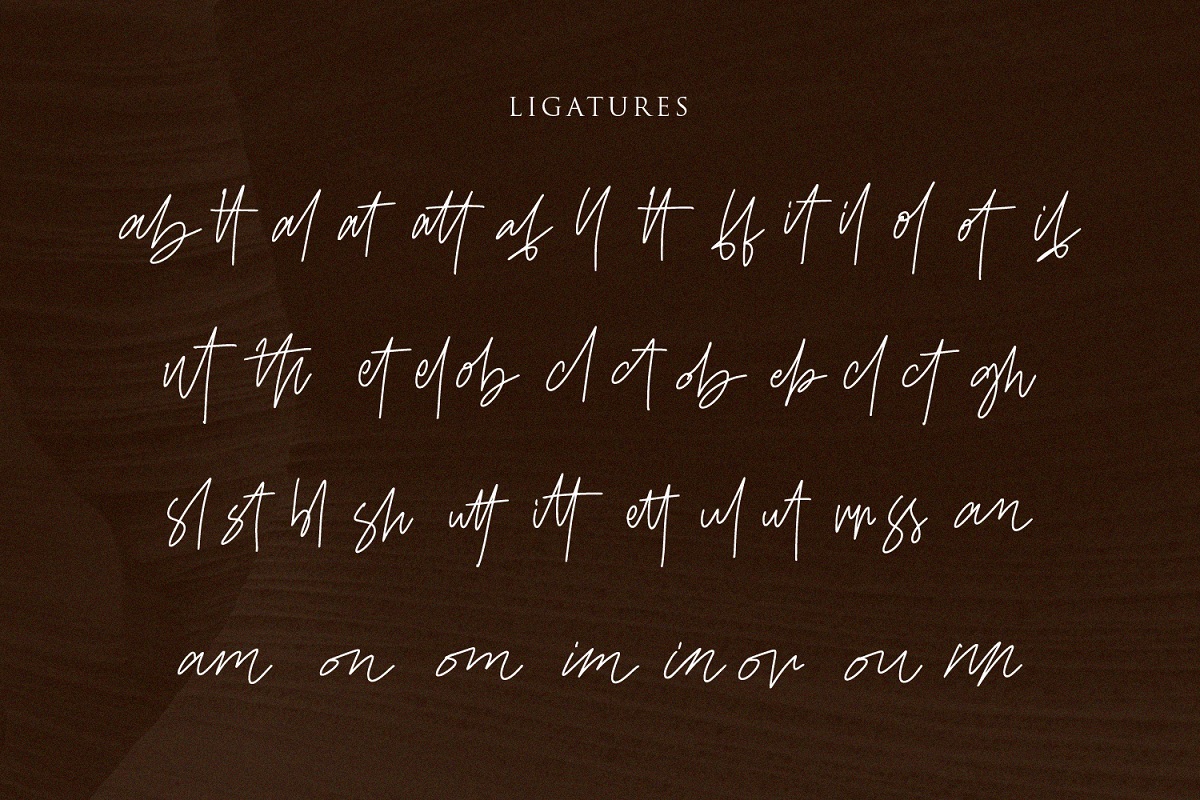 LIGATURES
ab tt al at att af ll tt ff it il ol ot if
nt th et el ob cl ct ob eb cl ct gh
sl st bl sh utt itt ett ul ut rr ss an
am on om im in ov ou nn